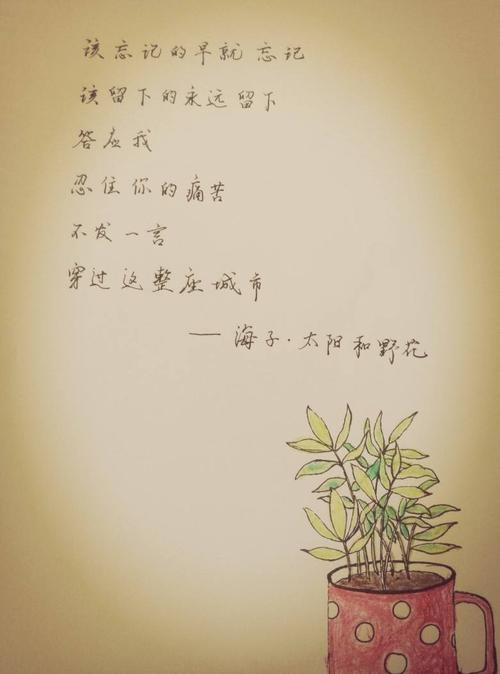 该忘记的早就忘记
该留下的永远留下
答应我
忍住你的痛苦
不发一言
穿过这整座城市
——海子·太阳和野花